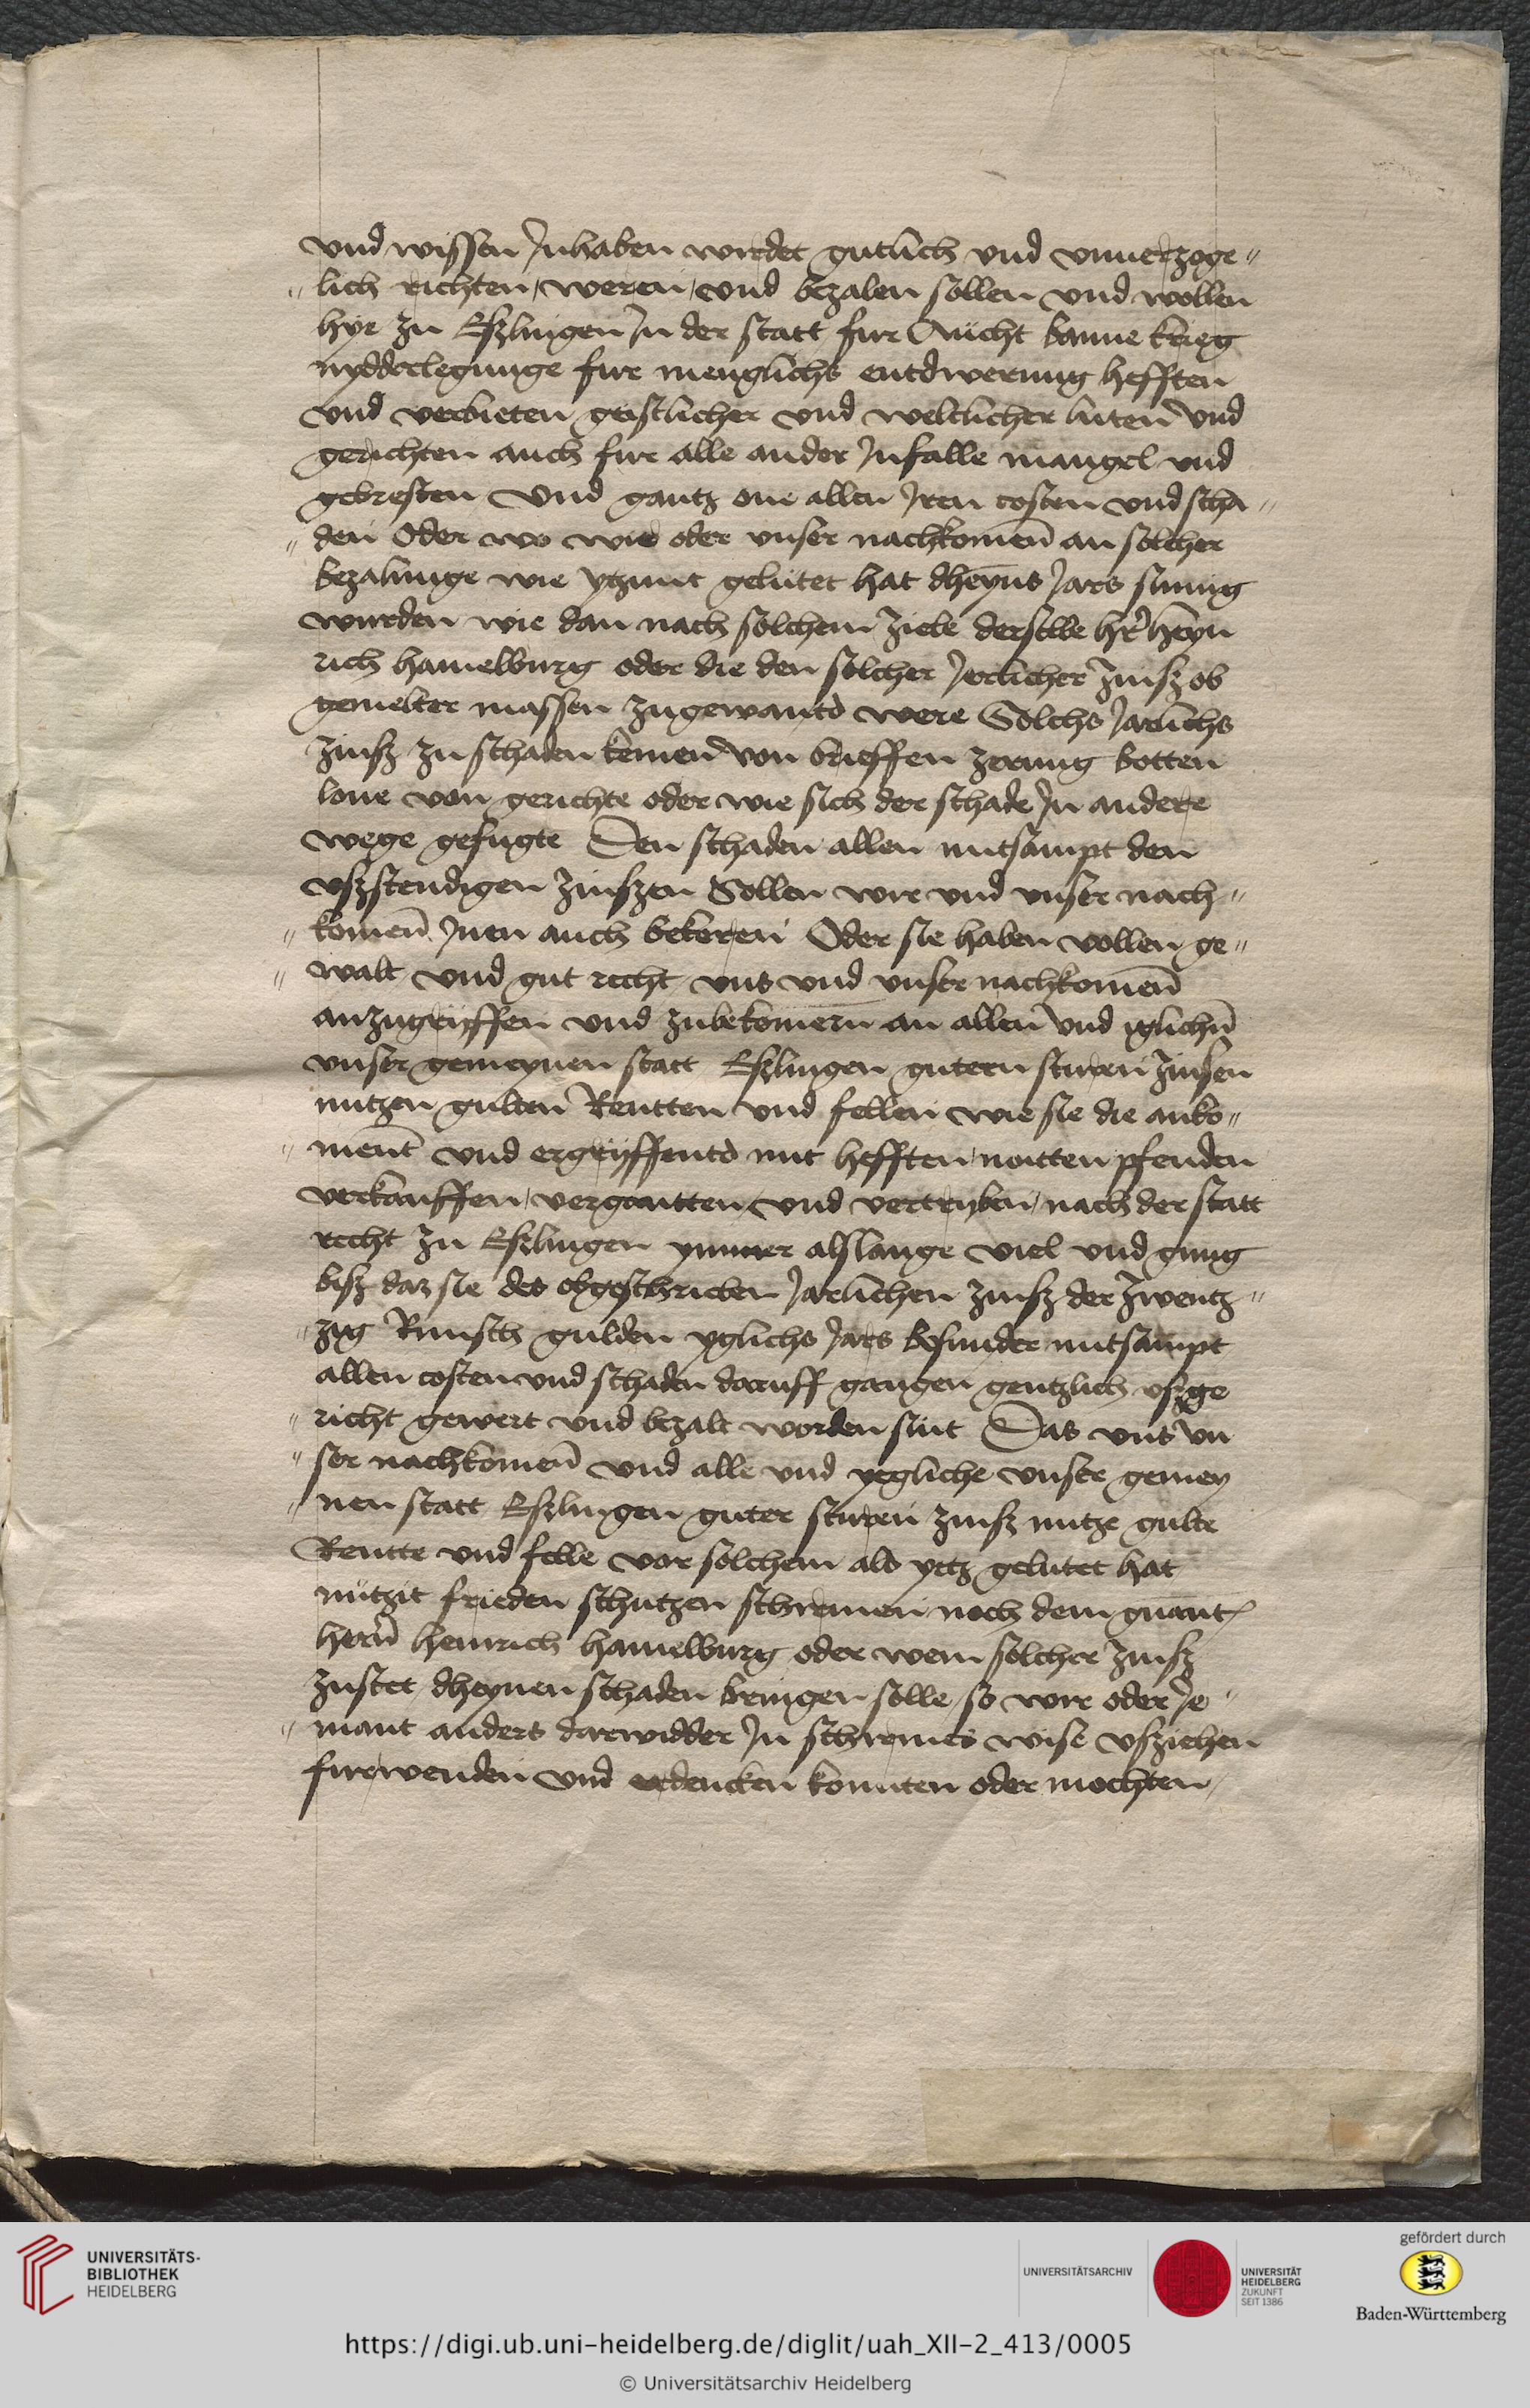 und wissen Inhaben wirdet gutlich und unuerzoge"
"lich richten / weren / und bezalen sollen und wollen
hye zu Eßlingen In der statt fur Aucht banne krieg
nydderlegunge fur menglichs entwerung hefften
und verbieten geistlicher und weltlicher luten und
gerichten auch fur alle ander Infalle mangel und
gebresten Und gantz one allen Iren costen und scha"
"den Oder wo wir oder unser nachkomen an solcher
bezalunge wie ytzunt gelutet hat dheyns Jars sumig
wurden wie dan nach solchem Ziele derselbe her Heyn
rich Hamelburg oder die den solcher Jerlicher Zinß ob
gemelter massen zugewantd were Solchs Jarlichs
Zinß zu schaden kemen von brieffen zerung botten
lone von gerichte oder wie sich der schade In andere
wege gefugte Den schaden allen mitsampt den
ußstendigen Zinßen Sollen wir und unser nach"
"komen Inen auch bekeren Oder sie haben vollen ge"
"walt und gut recht uns und unser nachkomen
anzugryffen und zubekomern an allen und iglichen
unser gemeynen statt Eßlingen gutern sturen Zinsen
nutzen gulten Rentten und fellen wie sie die anko"
"ment und ergryffentd mit hefften notten pfenden
verkauffen / vergantten / und vertryben / nach der statt
recht zu Eßlingen ymmer alßlange viel und gnug
biß daz sie des obgeschrieben Jarlichen Zinß der Zwentz"
"zig Rinsch gulden yglichs Jars besunder mitsampt
allen costen und schaden daruff gangen gentzlich ußge
"richt gewert und bezalt worden sint Das uns un
"ser nachkomen und alle und yegliche unser gemey
"nen statt Eßlingen guter sturen Zinß nutze gulte
Rentte und felle vor solchem als yetz gelutet hat
nutzit frieden schutzen schirmen noch dem gnant
hern Heinrich Hamelburg oder wem solcher Zinß
zustet dheynen schaden bringen solle / so wir oder Je"
"mant anders darwidder In schirmes wise ußziehen
furwenden und erdencken konnten oder mochten /
UNIVERSITÄTS-
BIBLIOTHEK
HEIDELBERG
UNIVERSITÄTSARCHIV
UNIVERSITÄT
HEIDELBERG
ZUKUNFT
SEIT 1386
gefördert durch
Baden-Württemberg
https://digi.ub.uni-heidelberg.de/diglit/uah_XII-2_413/0005
© Universitätsarchiv Heidelberg